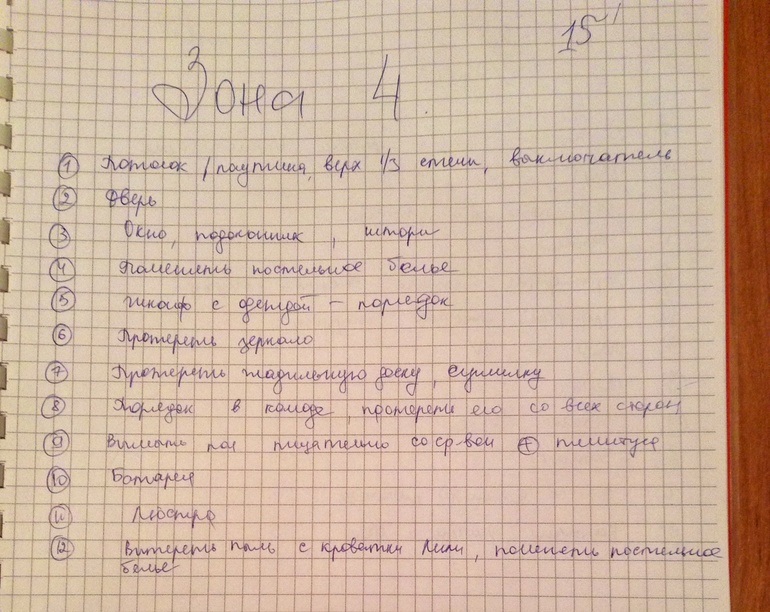 15'
Зона 4.
1 Потолок / паутина, верх 1/3 стены, выключатель
2 Дверь
3 Окно, подоконник, шторы
4 Поменять постельное белье
5 шкаф с одеждой – порядок
6 Протереть зеркало
7 Протереть гладильную доску, сушилку
8 Порядок в комоде, протереть его со всех сторон
9 Вымыть пол тщательно со ср-вом + плинтуса
10 Батарея
11 Люстра
12 Вытереть пыль с кроватки Лили, поменять постельное
белье